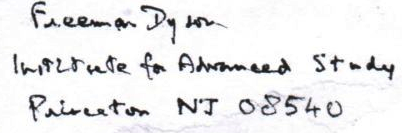 Freeman Dyson
Institute for Advanced Study
Princeton NJ 08540